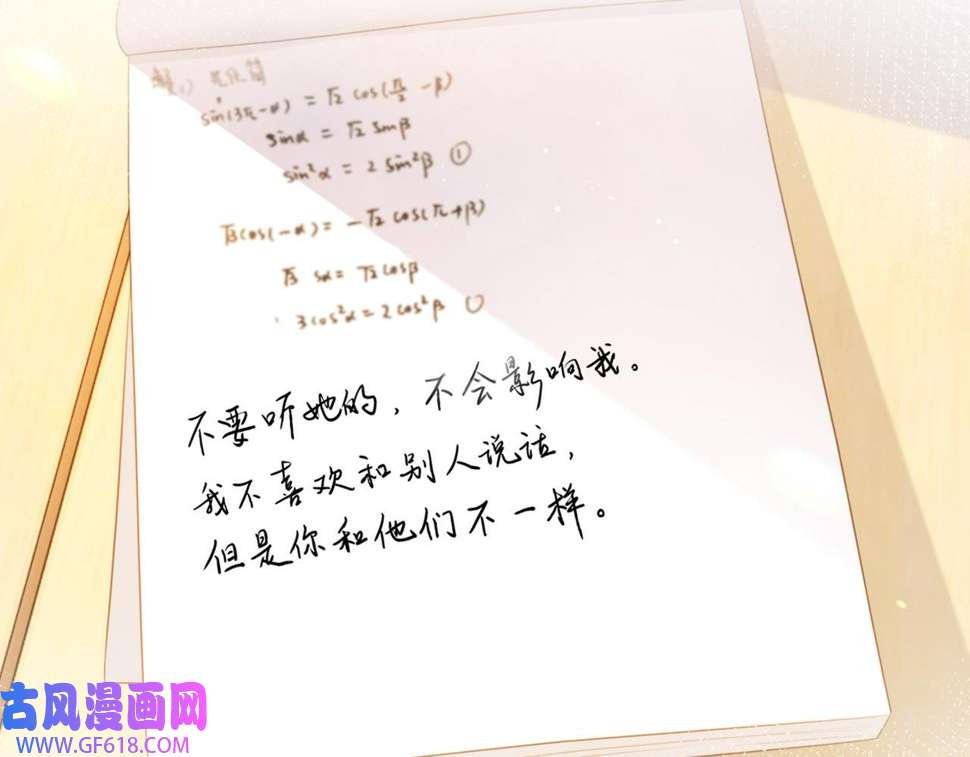 解:1) 先化简
sin(3π-α) = √2 cos(π/2 -β)
sinα = √2 sinβ
sin²α = 2 sin²β ①
√3cos(-α) = -√2 cos(π+β)
√3 sα = √2 cosβ
3cos²α = 2cos²β
不要听她的，不会影响我。
我不喜欢和别人说话，
但是你和他们不一样。
古风漫画网
WWW.GF618.COM